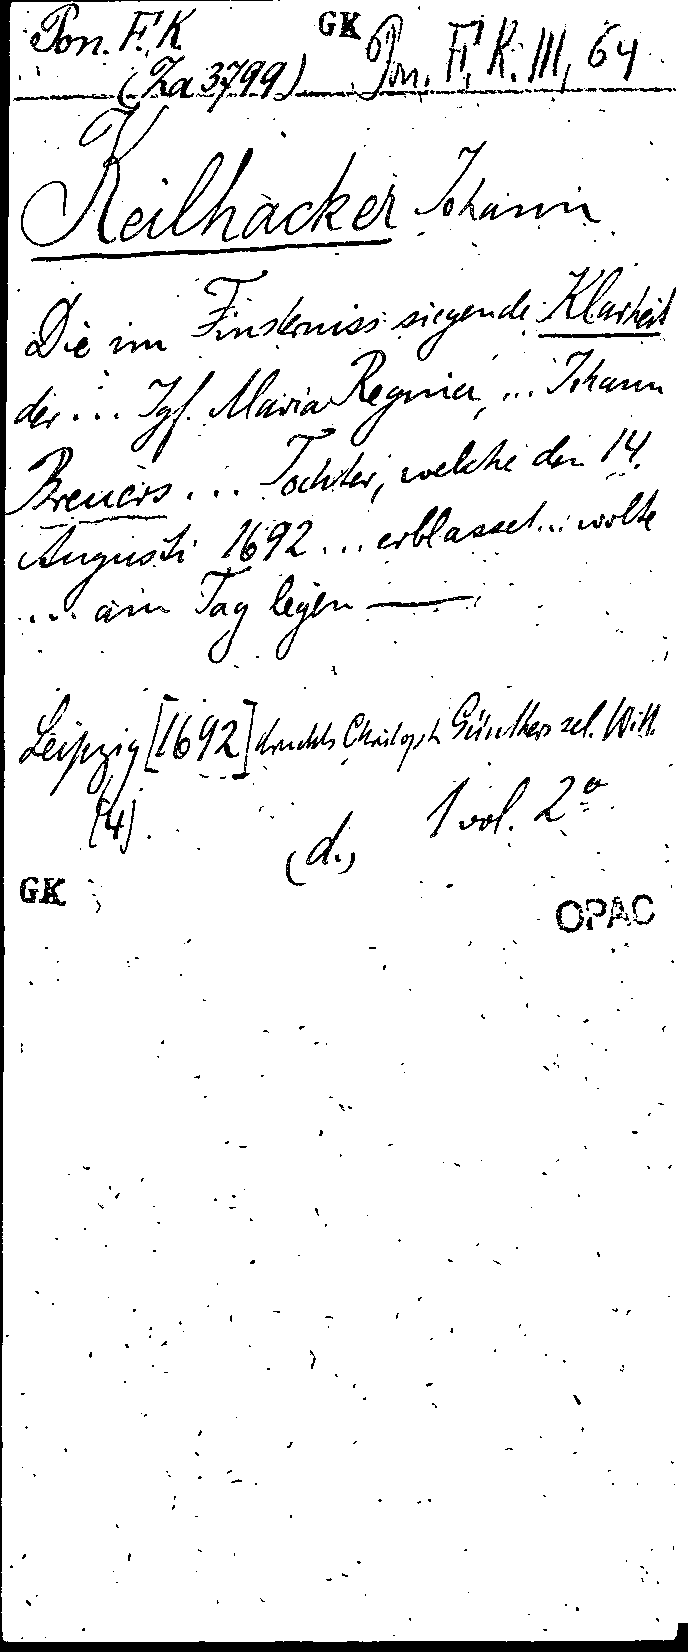 Pon. F. K GK Pon. F. K. III, 64
(Za 3799)
Keilhacker Johann
Die im Finsterniss siegende Klarheit
der ... Igf. Maria Regina, ... Johann
Breuers ... Tochter, welche den 14.
Augusti 1692 ... erblasset ... wolte
... am Tag legen —
Leipzig [1692] druckts Christoph Günthers sel. Witt.
(4). (d.) 1 vol. 2°
GK OPAC